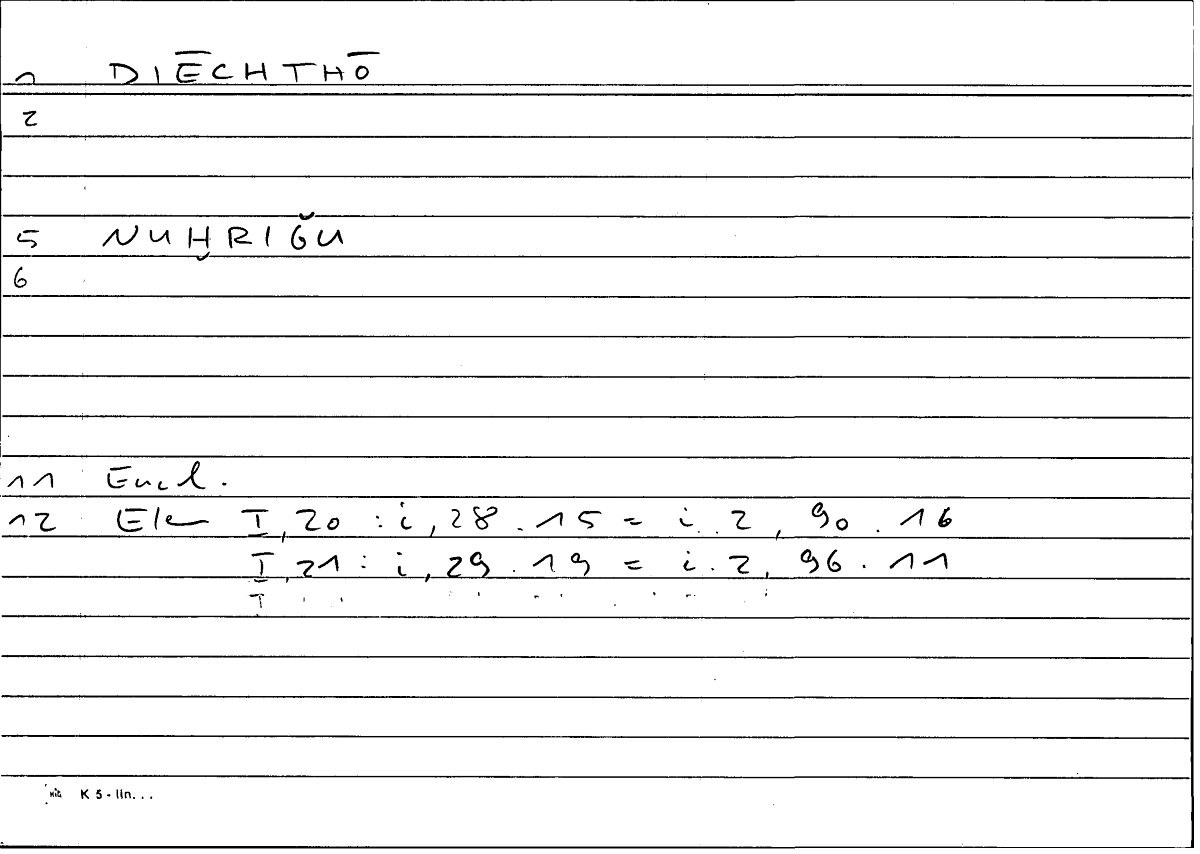 1 DIĒCHTHŌ
2
5 NUḪRIǦU
6
11 Eucl.
12 Elem I,20 : i, 28.15 = i.2, 90.16
I,21 : i, 29.19 = i.2, 96.11
K 5 - lin...